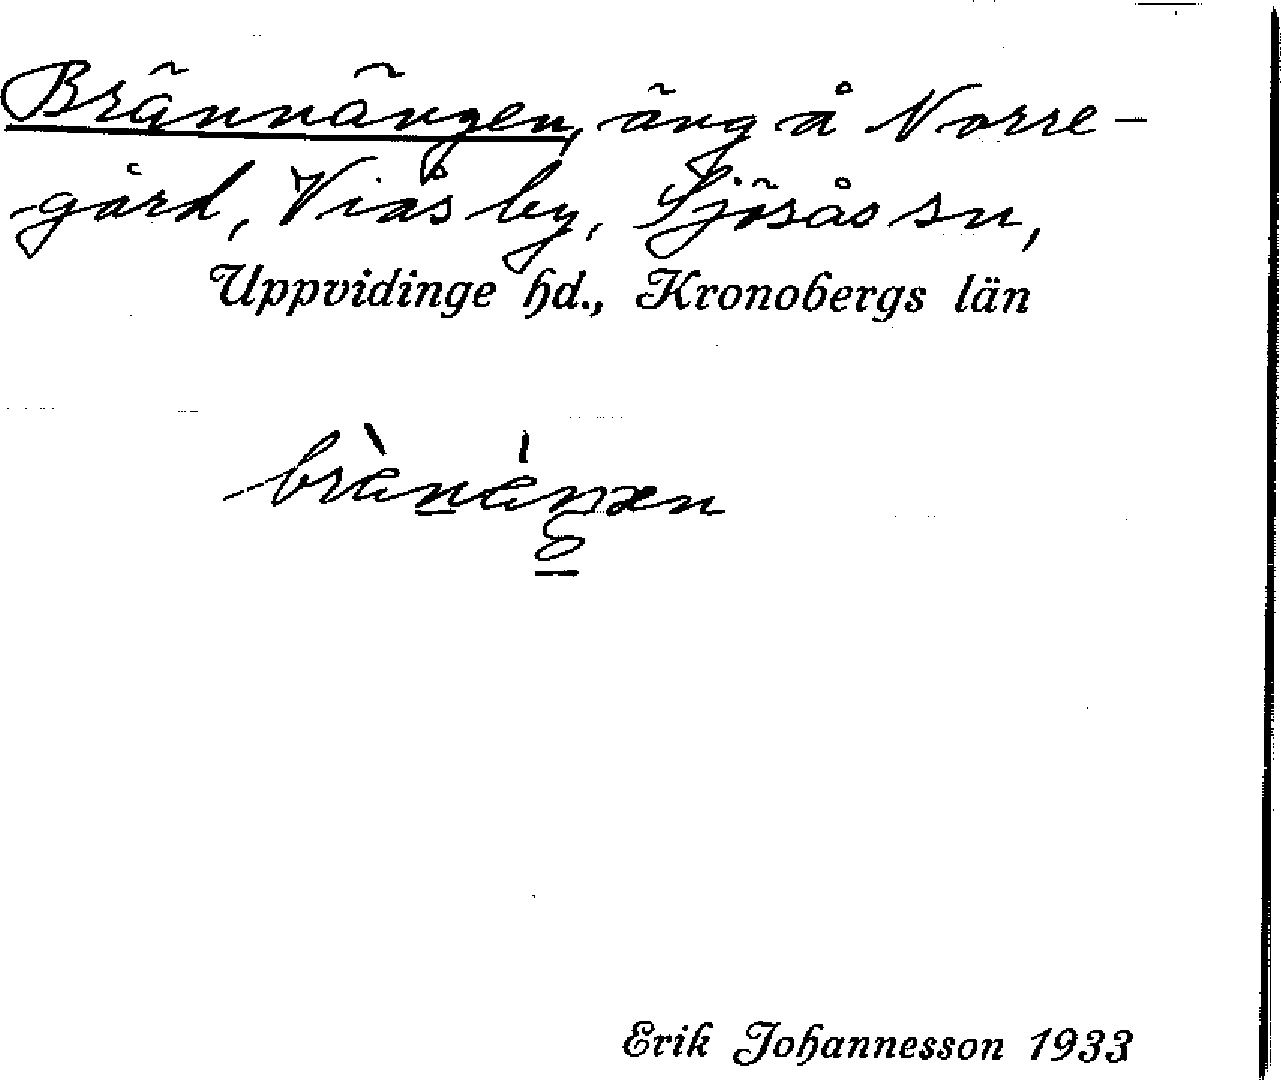 Brännängen, äng å Norre-
gård, Viås by, Sjösås sn,
Uppvidinge hd., Kronobergs län
brànàŋən
Erik Johannesson 1933